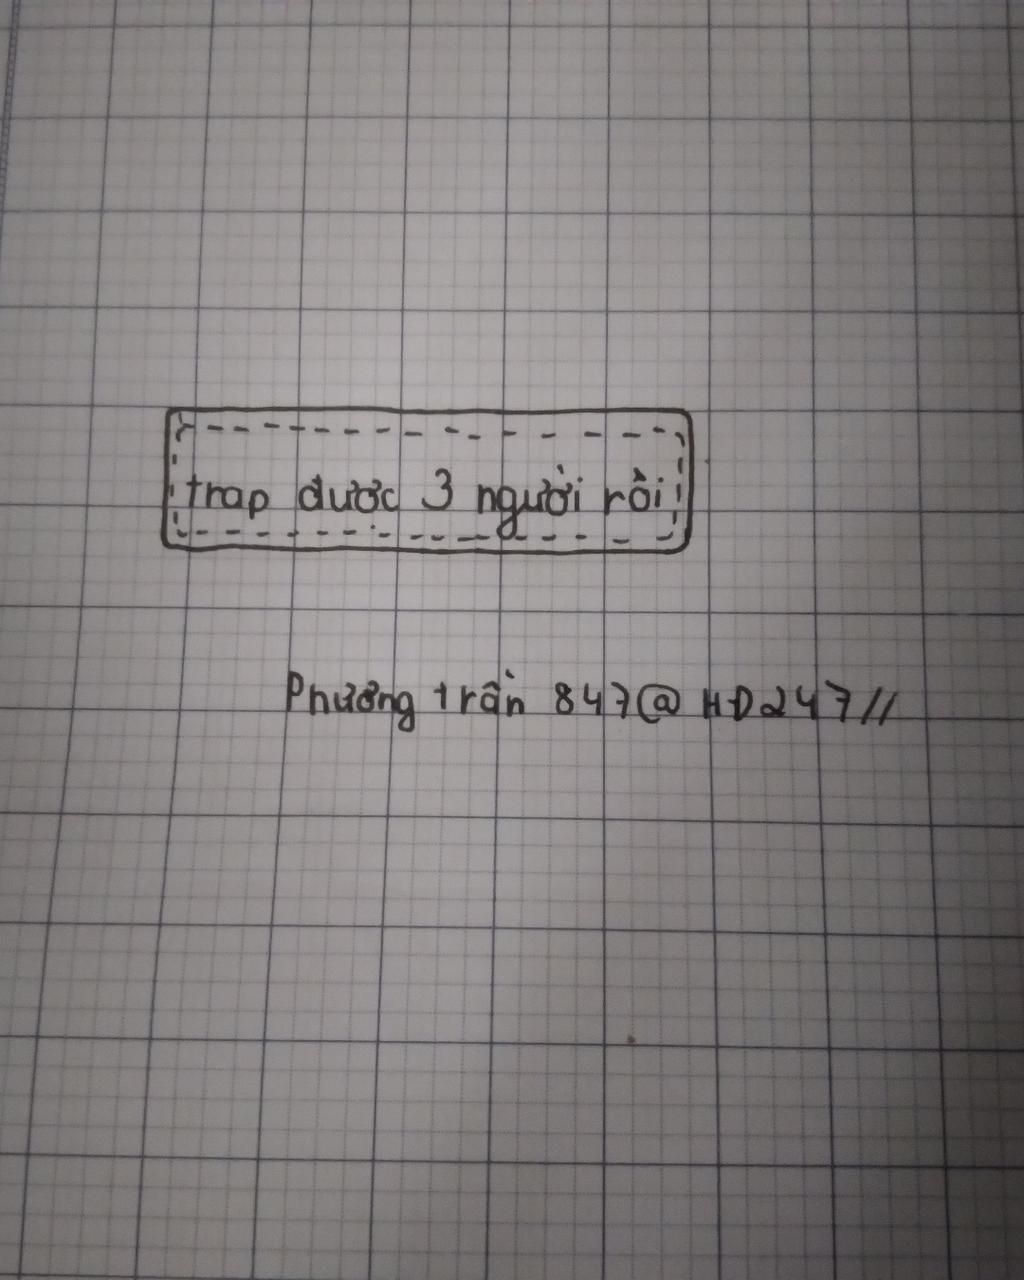 trap được 3 người rồi
Phương trần 847@ HD247//